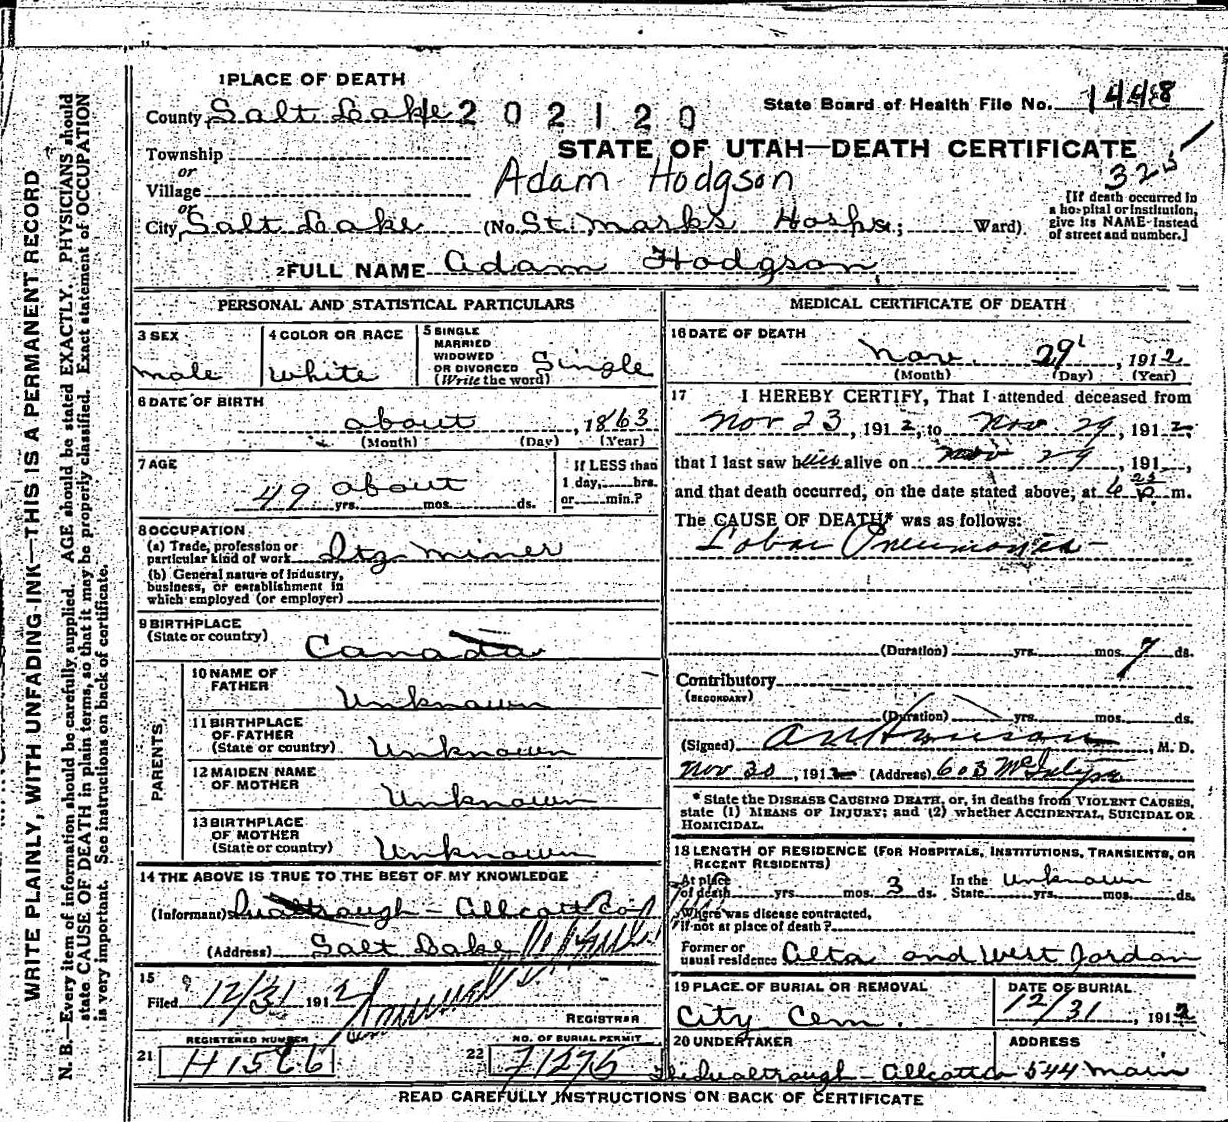 1 PLACE OF DEATH
County, Salt Lake 1202120 State Board of Health File No. 1448
Township
STATE OF UTAH—DEATH CERTIFICATE
or
Village Adam Hodgson 325
or
City, Salt Lake (No. St. Marks Hosp.; Ward)
[If death occurred in
a hospital or institution,
give its NAME instead
of street and number.]
2 FULL NAME Adam Hodgson
PERSONAL AND STATISTICAL PARTICULARS
3 SEX
male
4 COLOR OR RACE
White
5 SINGLE
MARRIED
WIDOWED
OR DIVORCED
(Write the word)
Single
6 DATE OF BIRTH
about, 1863
(Month) (Day) (Year)
7 AGE
49 about
yrs. mos. ds.
If LESS than
1 day, hrs.
or min.?
8 OCCUPATION
(a) Trade, profession or
particular kind of work Miner
(b) General nature of industry,
business, or establishment in
which employed (or employer)
9 BIRTHPLACE
(State or country)
Canada
PARENTS
10 NAME OF
FATHER
Unknown
11 BIRTHPLACE
OF FATHER
(State or country) Unknown
12 MAIDEN NAME
OF MOTHER
Unknown
13 BIRTHPLACE
OF MOTHER
(State or country) Unknown
14 THE ABOVE IS TRUE TO THE BEST OF MY KNOWLEDGE
(Informant) Allcott Co
(Address) Salt Lake
15
Filed 12/31 1912
REGISTRAR
REGISTERED NUMBER
21
NO. OF BURIAL PERMIT
22 71275
MEDICAL CERTIFICATE OF DEATH
16 DATE OF DEATH
Nov. 29, 1912
(Month) (Day) (Year)
17 I HEREBY CERTIFY, That I attended deceased from
Nov 23, 1912, to Nov. 29, 1912,
that I last saw him alive on Nov 29, 191 ,
and that death occurred, on the date stated above, at 6 25 P. m.
The CAUSE OF DEATH* was as follows:
Lobar Pneumonia
(Duration) yrs. mos. 7 ds.
Contributory
(SECONDARY)
(Duration) yrs. mos. ds.
(Signed), M. D.
Nov 30, 1912 (Address) 603
* State the DISEASE CAUSING DEATH, or, in deaths from VIOLENT CAUSES,
state (1) MEANS OF INJURY; and (2) whether ACCIDENTAL, SUICIDAL OR
HOMICIDAL.
18 LENGTH OF RESIDENCE (FOR HOSPITALS, INSTITUTIONS, TRANSIENTS, OR
RECENT RESIDENTS)
At place In the Unknown
of death yrs. mos. 3 ds. State yrs. mos. ds.
Where was disease contracted,
if not at place of death?
Former or
usual residence Alta and West Jordan
19 PLACE OF BURIAL OR REMOVAL
City Cem.
DATE OF BURIAL
12/31, 1912
20 UNDERTAKER
ADDRESS
544 Main
READ CAREFULLY INSTRUCTIONS ON BACK OF CERTIFICATE
WRITE PLAINLY, WITH UNFADING INK—THIS IS A PERMANENT RECORD
N. B.—Every item of information should be carefully supplied. AGE should be stated EXACTLY. PHYSICIANS should
state CAUSE OF DEATH in plain terms, so that it may be properly classified. Exact statement of OCCUPATION
is very important. See instructions on back of certificate.